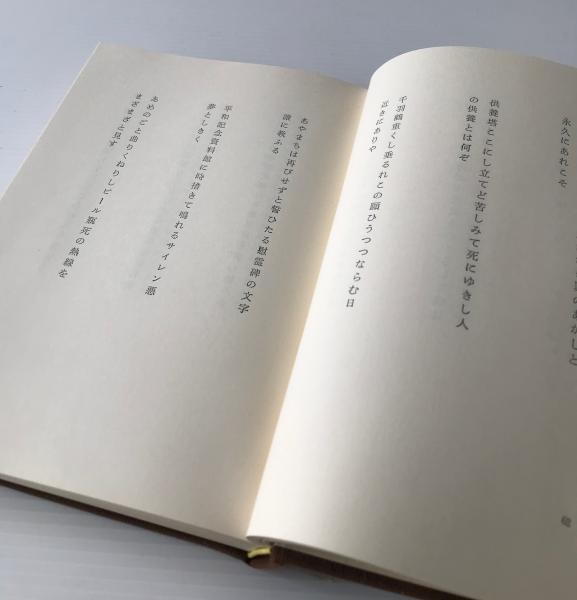 のあかしと
永久にあれこそ
供養塔ここにし立てど苦しみて死にゆきし人
の供養とは何ぞ
千羽鶴重くし垂るれこの願ひうつつならむ日
近きにありや
あやまちは再びせずと誓ひたる慰霊碑の文字
誰に教ふる
平和記念資料館に時措きて鳴れるサイレン悪
夢としきく
あめのごと曲りくねりしビール瓶死の熱線を
まざまざと見す